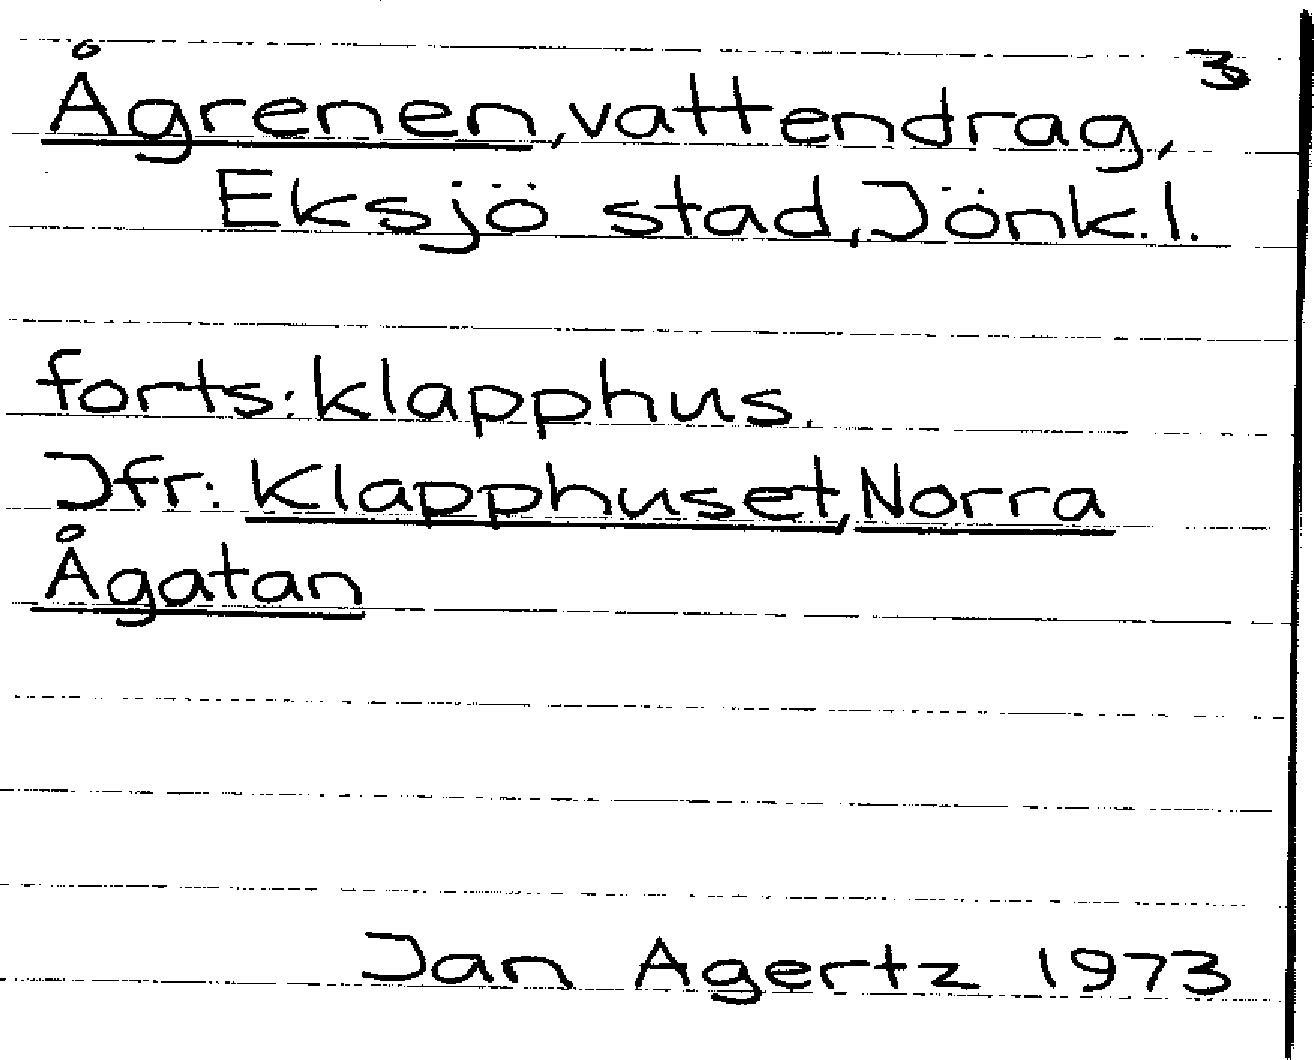 3
Ågrenen, vattendrag,
Eksjö stad, Jönk. l.
forts: klapphus.
Jfr: Klapphuset, Norra
Ågatan
Jan Agertz 1973